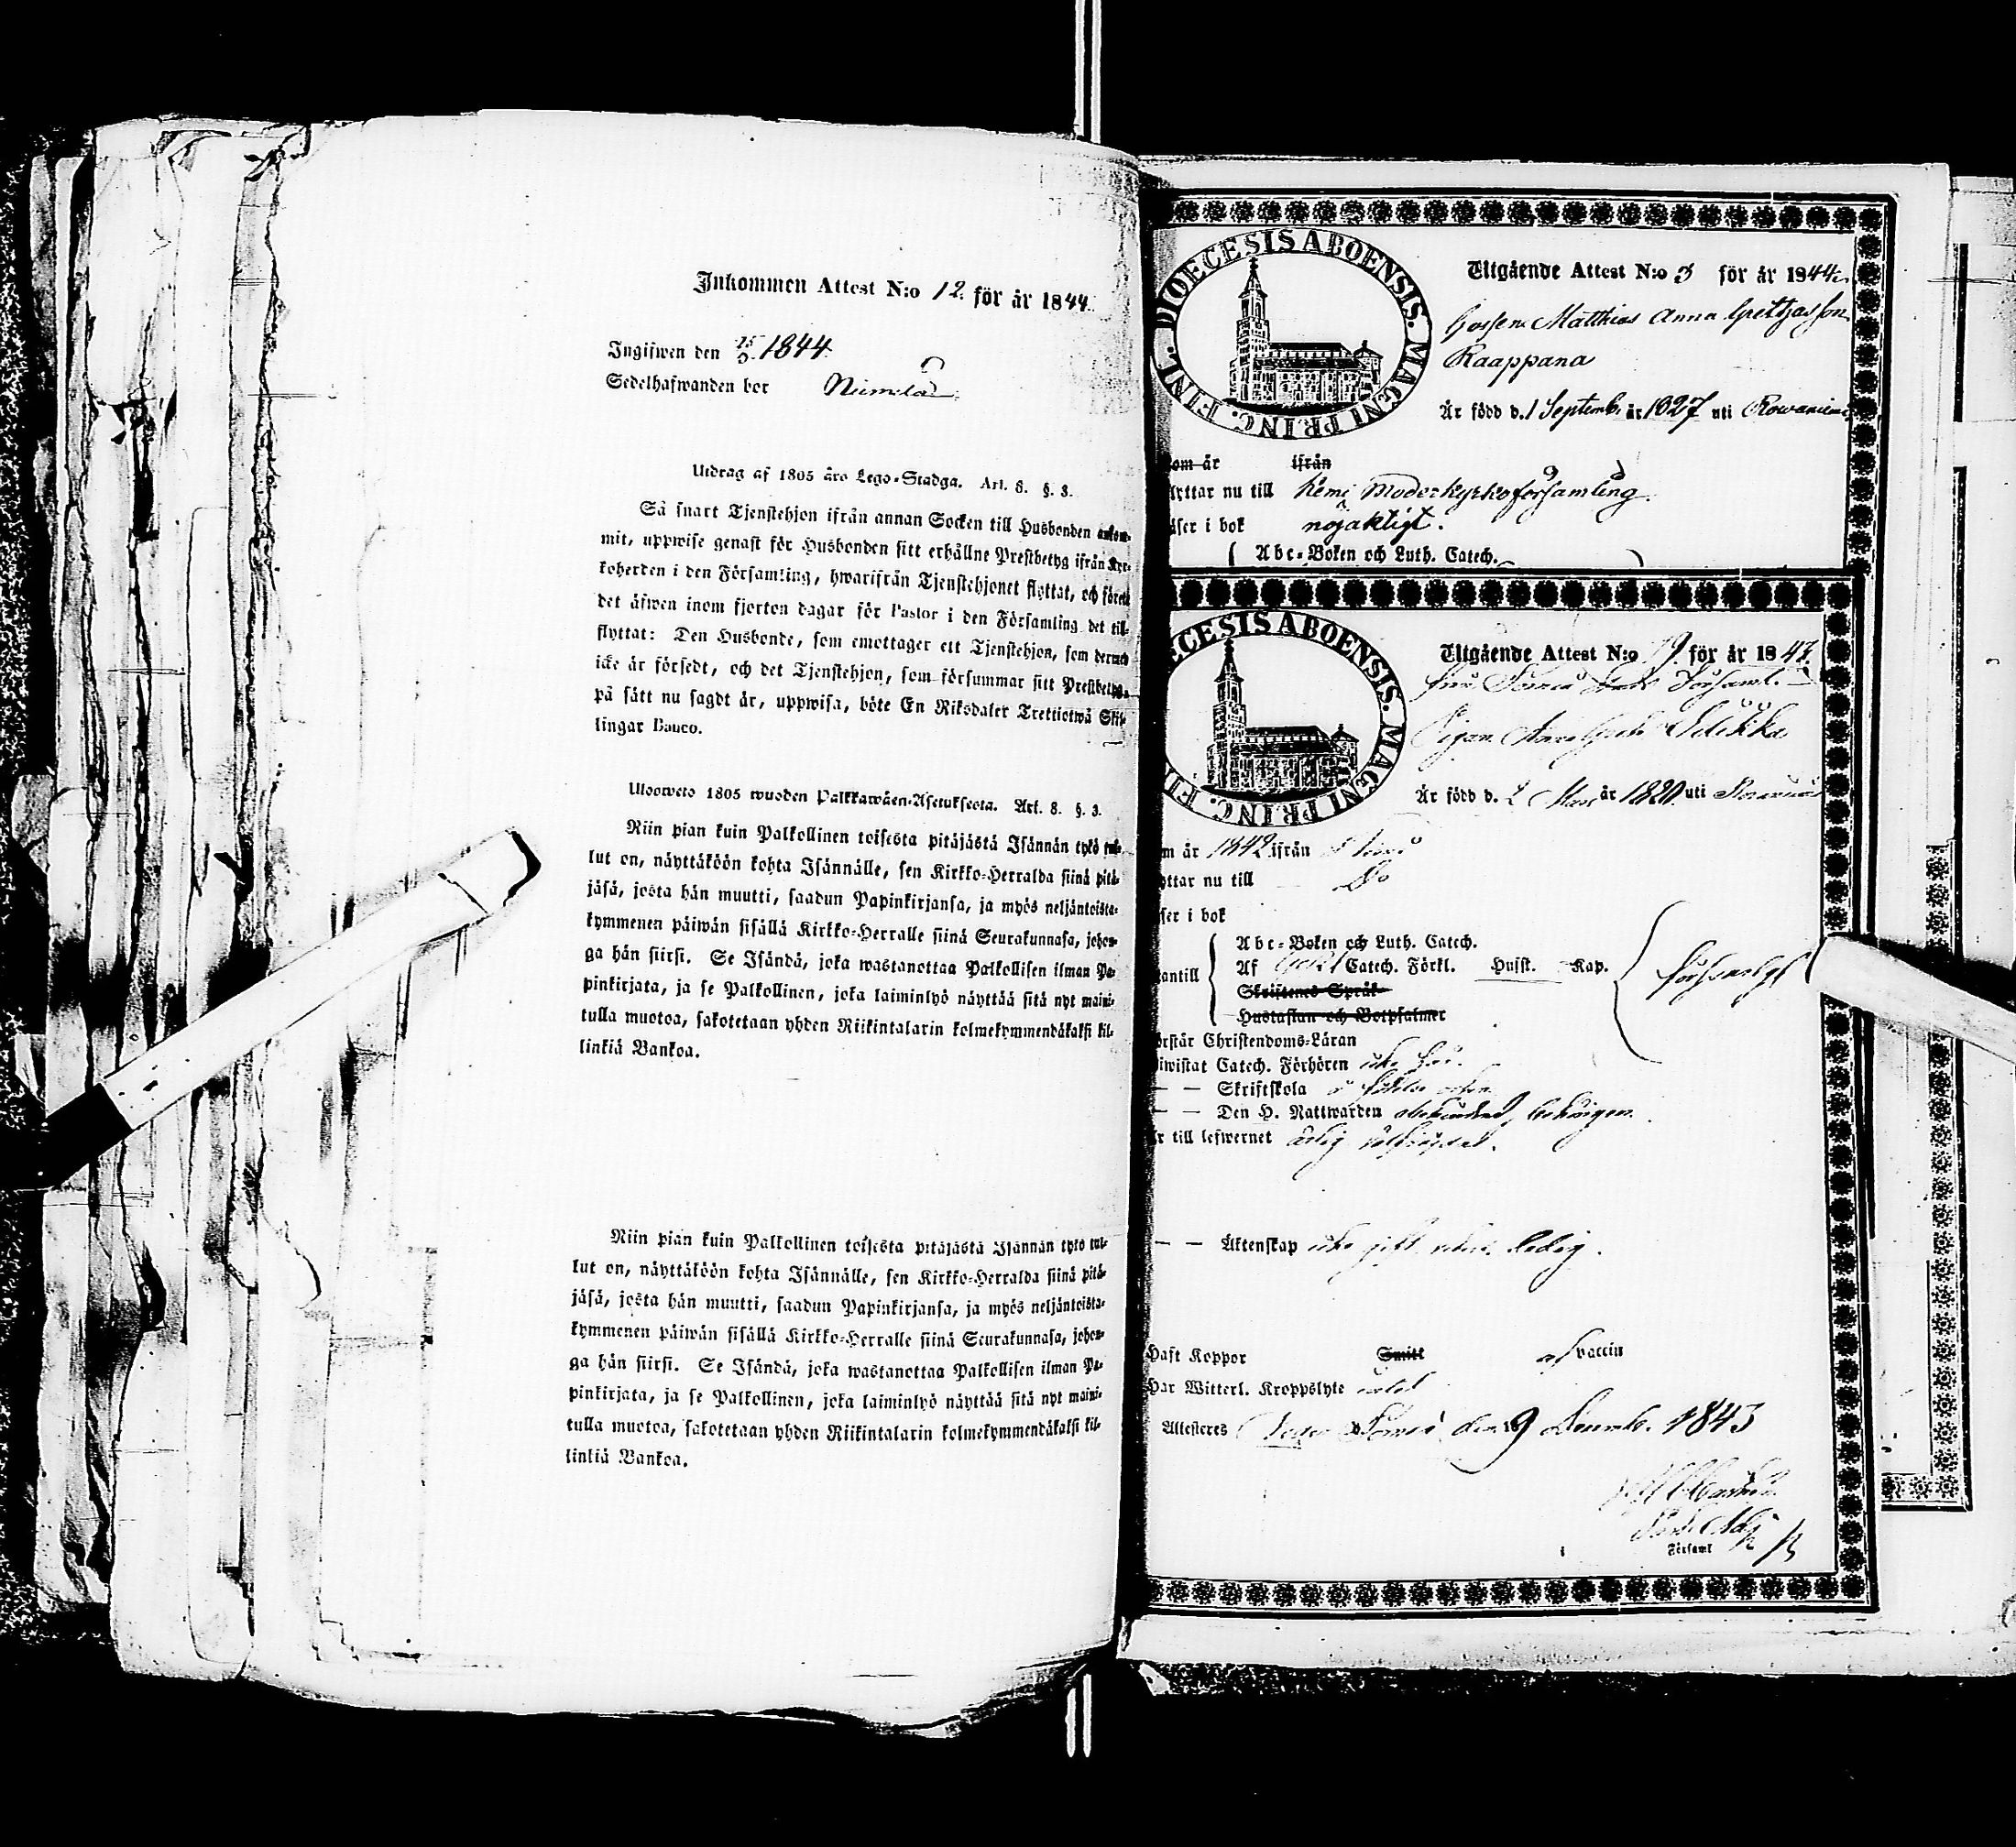 Inkommen Attest N:o 12. för år 1844.
Ingifwen den 15/9 1844.
Sedelhafwanden bor Niemelä
Utdrag af 1805 års Lego-Stadga. Art. 8. §. 3.
Så snart Tjenstehjon ifrån annan Socken till Husbonden ankom-
mit, uppwise genast för Husbonden sitt erhållne Prestbetyg ifrån Kyr-
koherden i den Församling, hwarifrån Tjenstehjonet flyttat, och förete
det äfwen inom fjorton dagar för Pastor i den Församling det till-
flyttat: Den Husbonde, som emottager ett Tjenstehjon, som dermed
icke är försedt, och det Tjenstehjon, som försummar sitt Prestbetyg,
på sätt nu sagdt är, uppwisa, böte En Riksdaler Trettiotwå Skil-
lingar Banco.
Ulosweto 1805 wuoden Palkkawäen-Asetuksesta. Art. 8. §. 3.
Niin pian kuin Palkollinen toisesta pitäjästä Isännän tykö tul-
lut on, näyttäköön kohta Isännälle, sen Kirkko-Herralda siinä pitä-
jäsä, josta hän muutti, saadun Papinkirjansa, ja myös neljäntoista-
kymmenen päiwän sisällä Kirkko-Herralle siinä Seurakunnasa, johon-
ga hän siirsi. Se Isändä, joka wastanottaa Palkollisen ilman Pa-
pinkirjata, ja se Palkollinen, joka laiminlyö näyttää sitä nyt maini-
tulla muotoa, sakotetaan yhden Riikintalarin kolmekymmendäkaksi kil-
linkiä Bankoa.
Niin pian kuin Palkollinen toisesta pitäjästä Isännän tykö tul-
lut on, näyttäköön kohta Isännälle, sen Kirkko-Herralda siinä pitä-
jäsä, josta hän muutti, saadun Papinkirjansa, ja myös neljäntoista-
kymmenen päiwän sisällä Kirkko-Herralle siinä Seurakunnasa, johon-
ga hän siirsi. Se Isändä, joka wastanottaa Palkollisen ilman Pa-
pinkirjata, ja se Palkollinen, joka laiminlyö näyttää sitä nyt maini-
tulla muotoa, sakotetaan yhden Riikintalarin kolmekymmendäkaksi kil-
linkiä Bankoa.
DIOECESIS ABOENSIS. MAGNI PRINC. FINL.
Utgående Attest N:o 3 för år 1844.
Gossen Matthias Anna Gretasson
Kaappana
Är född d. 1 Septemb. år 1827 uti Rowaniemi
som år ifrån
lyttar nu till Kemi Moderkyrkoförsamling.
äser i bok nöjaktigt.
Abc-Boken och Luth. Catech.
ECESIS ABOENSIS. MAGNI PRINC. FI
Utgående Attest N:o 19. för år 1843.
Pigan Anna Greta
Är född d. 2 år 1820 uti
m år 1842 ifrån
yttar nu till Do
ser i bok
antill
Abc-Boken och Luth. Catech.
Af Catech. Förkl. Husst. Kap.
Skriftenes Språk
Hustaflan och Botpsalmer
försvarligt
örstår Christendoms-Läran
iwistat Catech. Förhören
— — Skriftskola
— — Den H. Nattwarden
r till lefwernet ärlig
— — Äktenskap ledig.
Haft Koppor Smitt af vaccin
Har Witterl. Kroppslyte
Attesteres den 9 Decemb. 1843
Församl